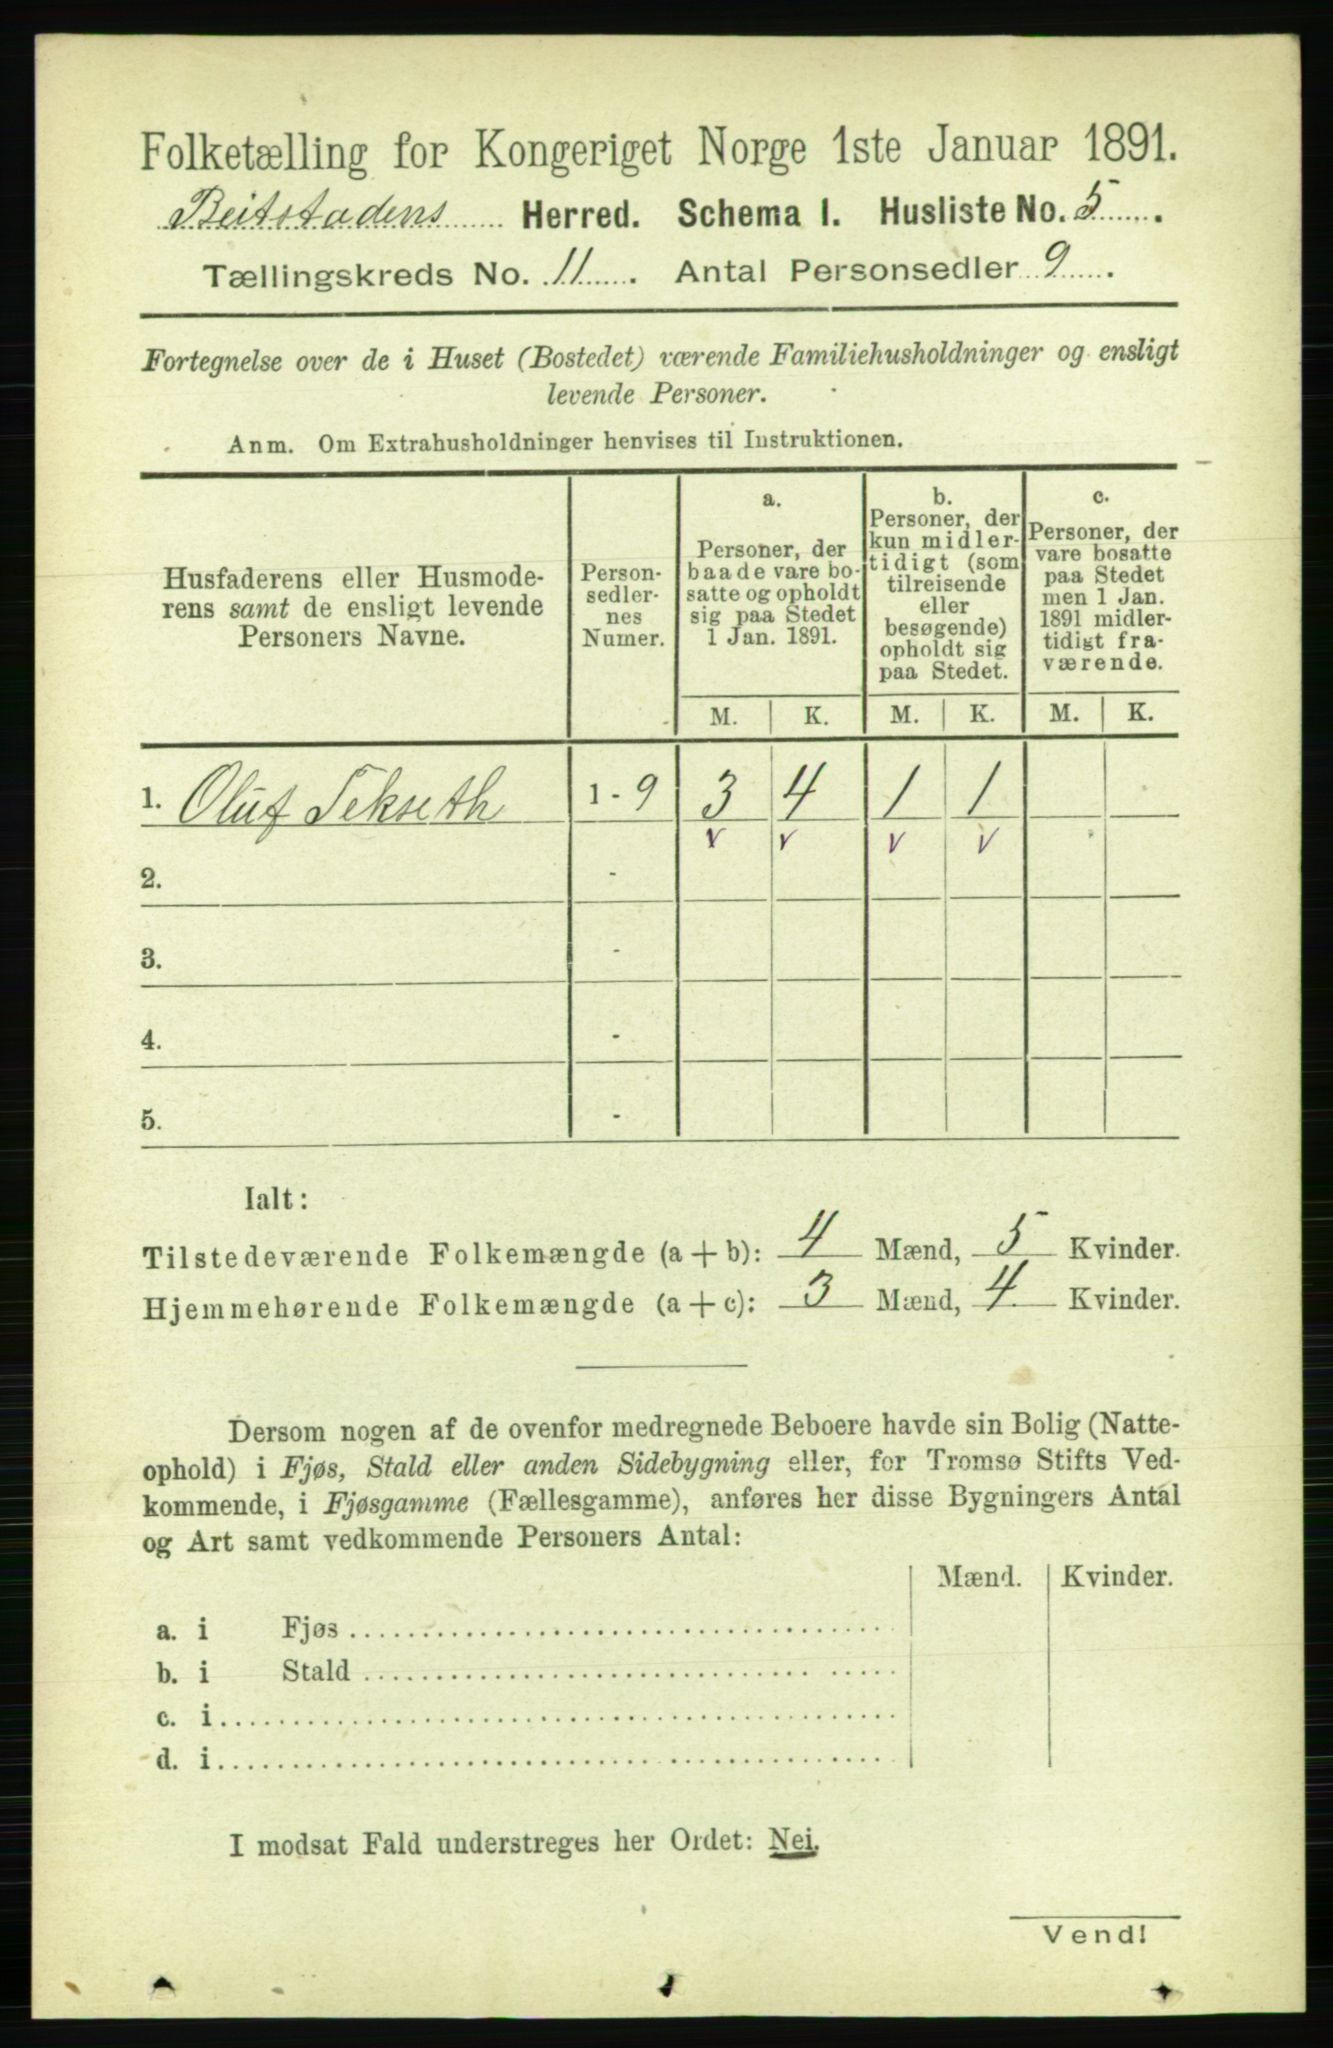 Folketælling for Kongeriget Norge 1ste Januar 1891.
Beitstadens Herred. Schema 1. Husliste No. 5.
Tællingskreds No. 11. Antal Personsedler 9.
Fortegnelse over de i Huset (Bostedet) værende Familiehusholdninger og ensligt
levende Personer.
Anm. Om Extrahusholdninger henvises til Instruktionen.
Husfaderens eller Husmode-
rens samt de ensligt levende
Personers Navne.
Person-
sedler-
nes
Numer.
a.
Personer, der
baade vare bo-
satte og opholdt
sig paa Stedet
1 Jan. 1891.
b.
Personer, der
kun midler-
tidigt (som
tilreisende
eller
besøgende)
opholdt sig
paa Stedet.
c.
Personer, der
vare bosatte
paa Stedet
men 1 Jan.
1891 midler-
tidigt fra-
værende.
M. K. M. K. M. K.
1. Oluf Sekseth 1 - 9 3 4 1 1
v v v v
2. -
3. -
4. -
5. -
Ialt:
Tilstedeværende Folkemængde (a + b): 4 Mænd, 5 Kvinder.
Hjemmehørende Folkemængde (a + c): 3 Mænd, 4 Kvinder.
Dersom nogen af de ovenfor medregnede Beboere havde sin Bolig (Natte-
ophold) i Fjøs, Stald eller anden Sidebygning eller, for Tromsø Stifts Ved-
kommende, i Fjøsgamme (Fællesgamme), anføres her disse Bygningers Antal
og Art samt vedkommende Personers Antal:
Mænd. Kvinder.
a. i Fjøs
b. i Stald
c. i
d. i
I modsat Fald understreges her Ordet: Nei.
Vend!